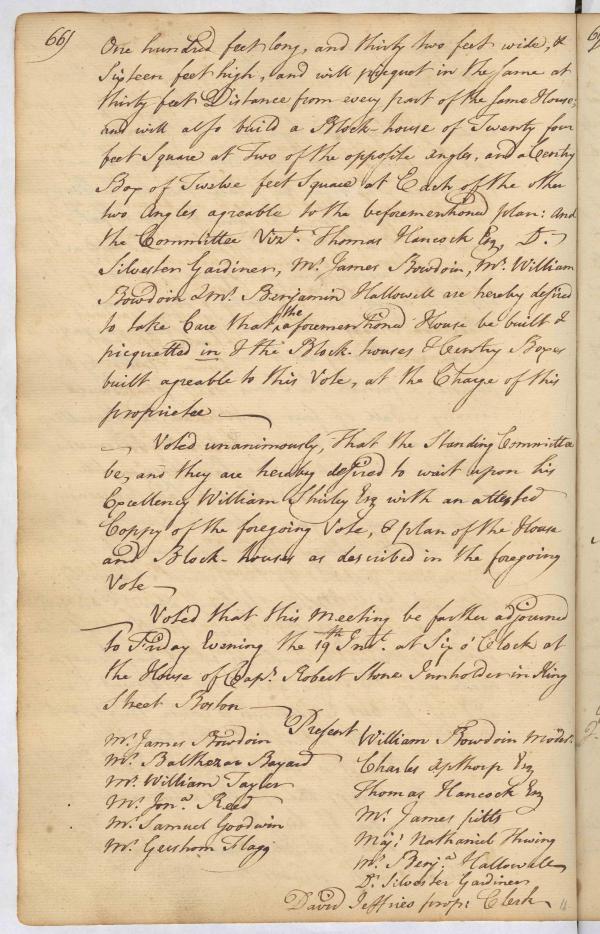 66)
One hundred feet long, and thirty two feet wide, &
Sixteen feet high, and will picquet in the same at
thirty feet Distance from every part of the same House;
and will also build a Block-house of Twenty four
feet Square at Two of the opposite angles, and a Centry
Box of Twelve feet Square at Each of the other
two Angles agreable to the beforementioned plan: And
the Committee Vizt. Thomas Hancock Esq, Dr.
Silvester Gardiner, Mr. James Bowdoin, Mr. William
Bowdoin & Mr. Benjamin Hallowell are hereby desired
to take Care that the aforementioned House be built &
picquetted in & the Block-houses & Centry Boxes
built agreable to this Vote, at the Charge of this
proprietee
Voted unanimously, That the Standing Committee
be, and they are hereby desired to wait upon his
Excellency William Shirley Esq with an attested
Coppy of the foregoing Vote, & plan of the House
and Block-houses as described in the foregoing
Vote
Voted that this Meeting be farther adjourned
to Friday Evening the 19th Inst. at Six o'Clock at
the House of Capt. Robert Stone Innholder in King
Street Boston
Present
Mr. James Bowdoin
Mr. Balthezar Bayard
Mr. William Tayler
Mr. Jona. Reed
Mr. Samuel Goodwin
Mr. Gershom Flagg
William Bowdoin Moder.
Charles Apthorp Esq
Thomas Hancock Esq
Mr. James Pitts
Majr. Nathaniel Thwing
Mr. Benja. Hallowell
Dr. Silvester Gardiner
David Jeffries propr. Clerk